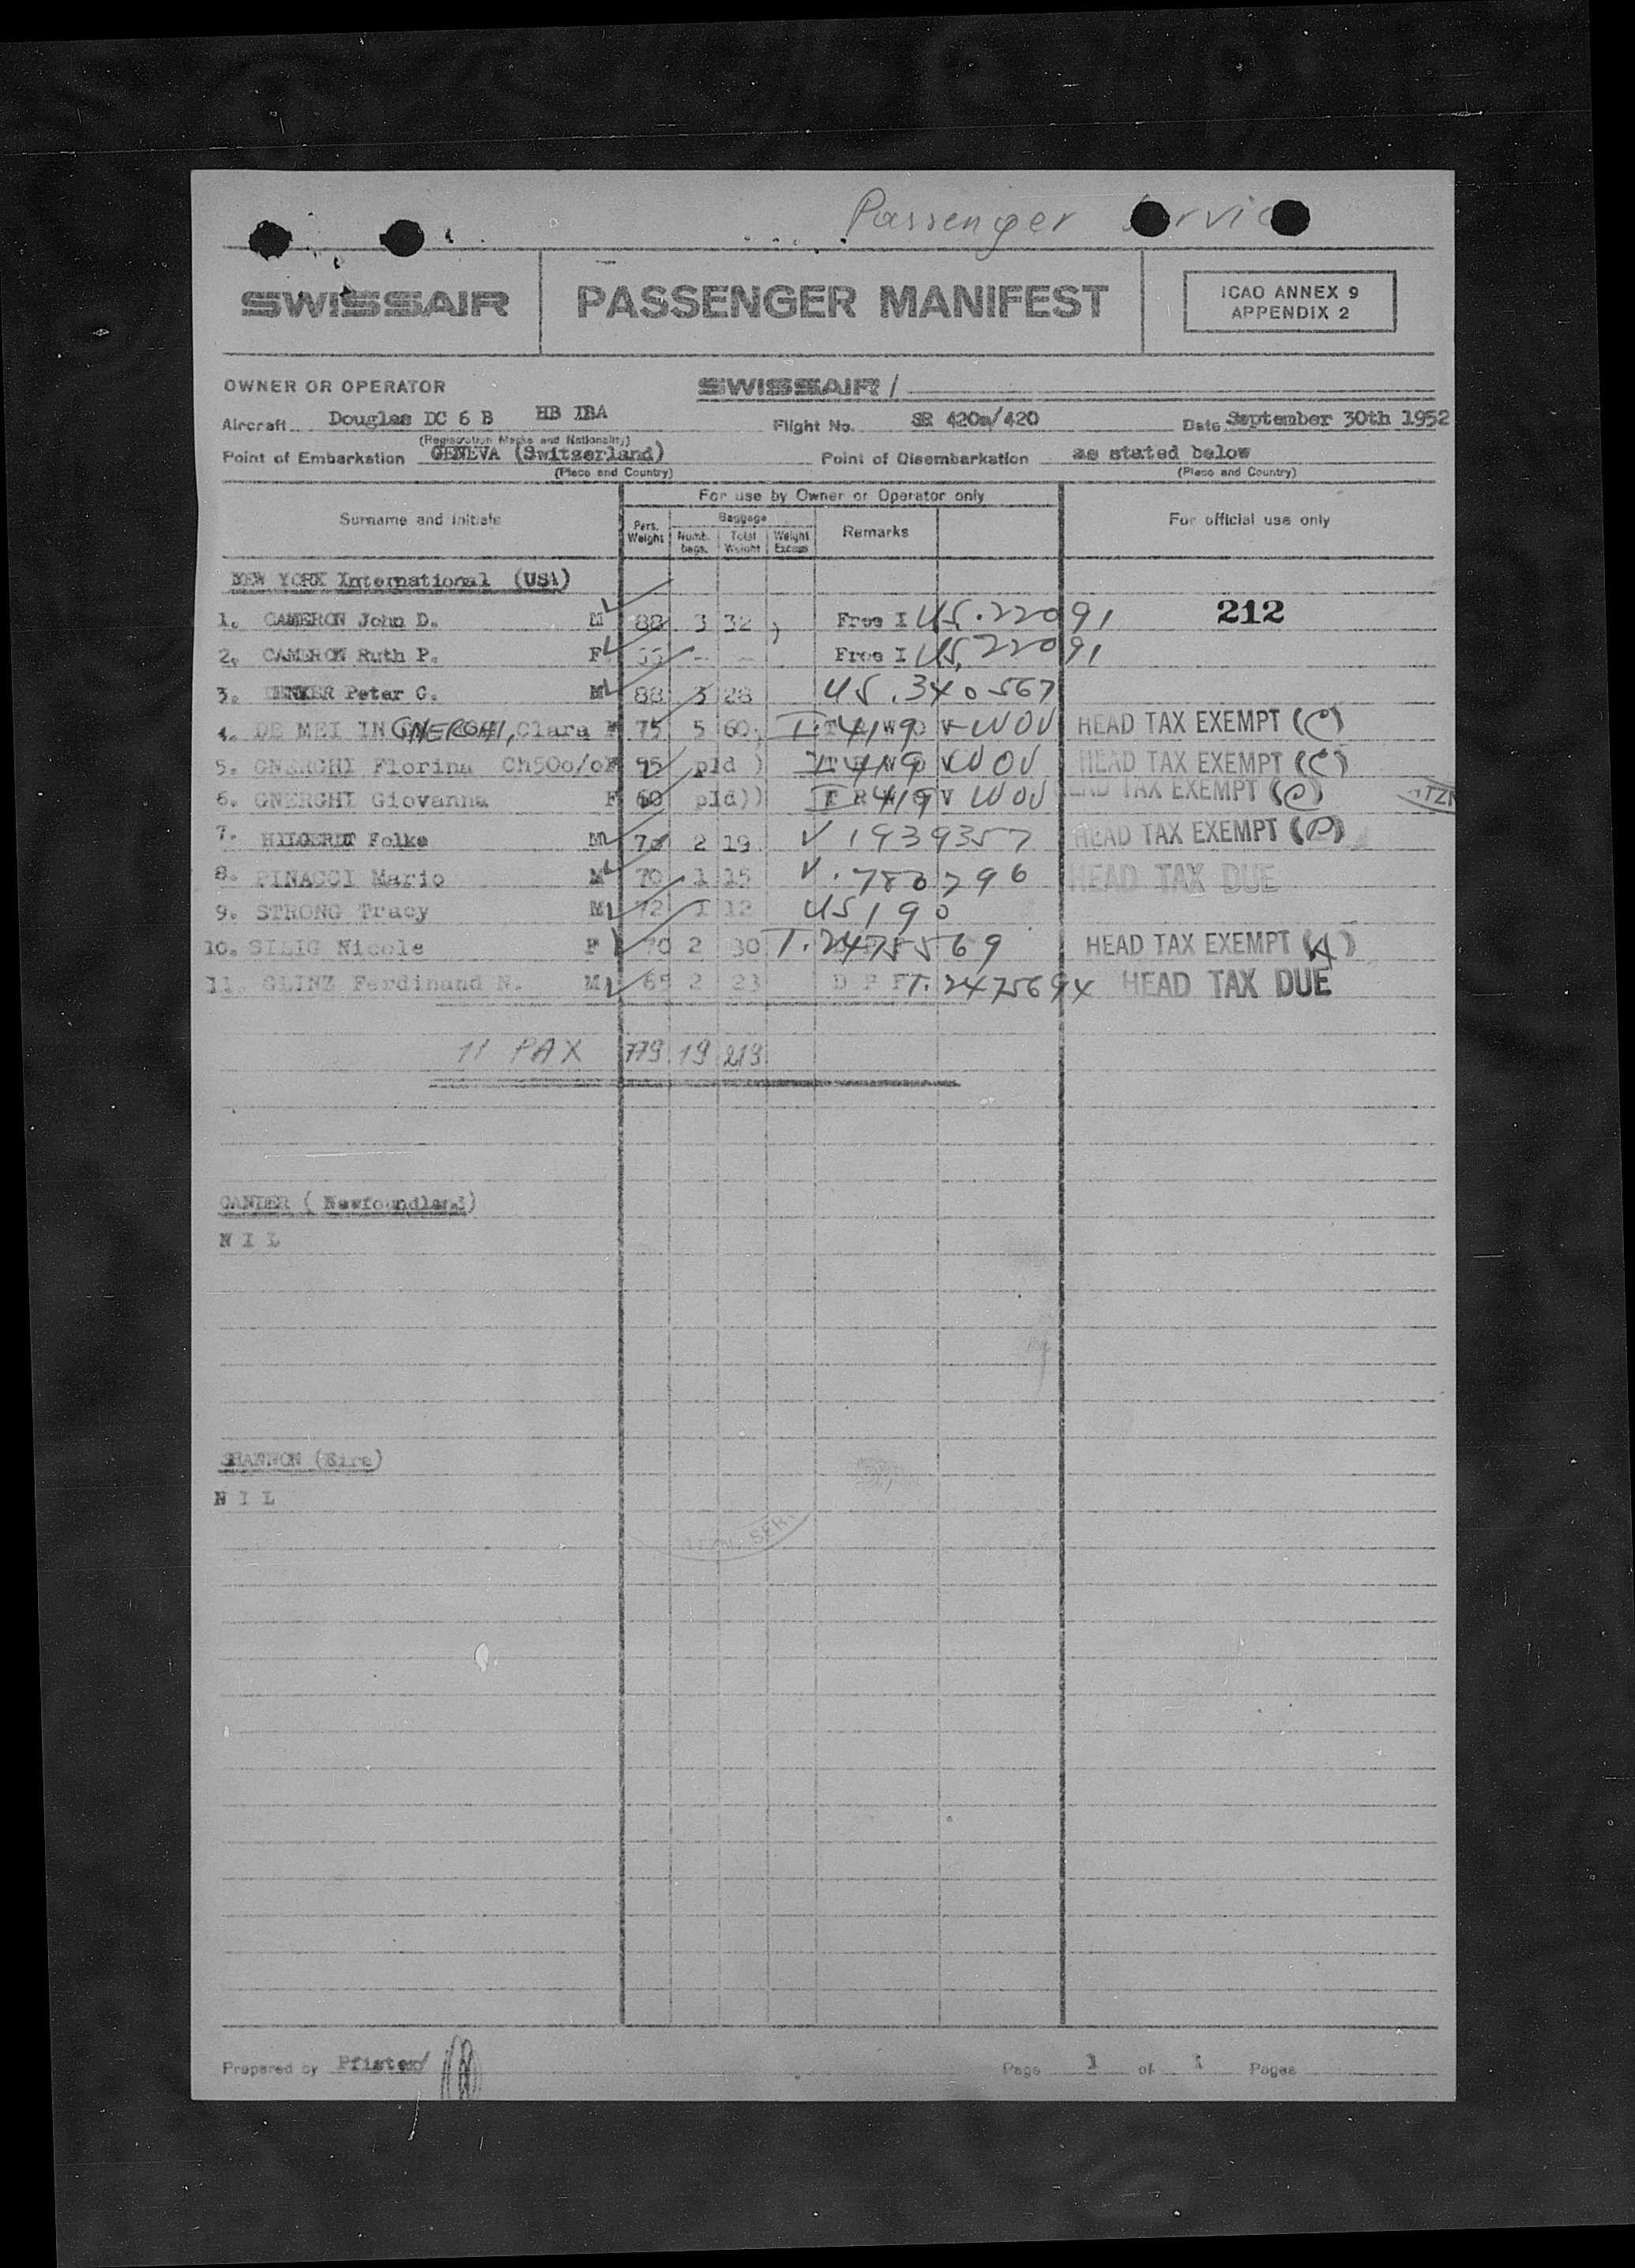 Passenger
SWISSAIR
PASSENGER MANIFEST
ICAO ANNEX 9
APPENDIX 2
OWNER OR OPERATOR SWISSAIR /
Aircraft Douglas DC 6 B HB IBA Flight No. SR 420a/420 Date September 30th 1952
(Registration Marks and Nationality)
Point of Embarkation GENEVA (Switzerland) Point of Disembarkation as stated below
(Place and Country) (Place and Country)
For use by Owner or Operator only
Surname and initials Pers. Weight Baggage Numb. bags. Total Weight Weight Excess Remarks For official use only
NEW YORK International (USA)
1. CAMERON John D. M 88 3 32 ) Free I US.22091 212
2. CAMERON Ruth P. F 55 - - Free I US.22091
3. DENKER Peter G. M 88 3 28 US.340567
4. DE MEI IN GNERGHI, Clara F 75 5 60 T 419 WOV HEAD TAX EXEMPT (C)
5. GNERGHI Florina Ch50o/o F pld ) 419 WOV HEAD TAX EXEMPT (C)
6. GNERGHI Giovanna F 60 pld)) 419 WOV HEAD TAX EXEMPT (C)
7. Folke M 70 2 19 V 1939357 HEAD TAX EXEMPT
8. PINACCI Mario M 70 1 15 V.780796 HEAD TAX DUE
9. STRONG Tracy M 72 1 12 US 190
10. SILIG Nicole F 70 2 30 T.2475569 HEAD TAX EXEMPT (A)
11. GLINZ Ferdinand N. M 65 2 23 T.2475694 HEAD TAX DUE
11 PAX 779 19 219
GANDER ( Newfoundland)
N I L
SHANNON (Eire)
N I L
SER
Prepared by Pfister/ Page 1 of 1 Pages